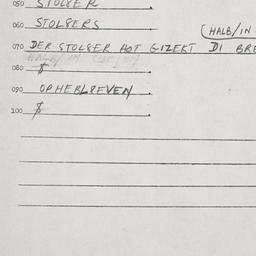 050 STOLPER
060 STOLPERS
(HALB/IN
070 DER STOLPER HOT GIZEKT DI BRE
080 $
090 OPHEBLPEVEN
100 $